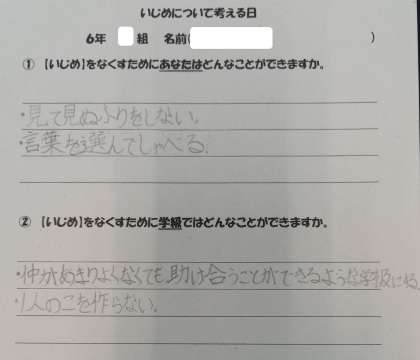 いじめについて考える日
6年 組 名前( )
① [いじめ]をなくすためにあなたはどんなことができますか。
・見て見ぬふりをしない。
・言葉を選んでしゃべる。
② [いじめ]をなくすために学級ではどんなことができますか。
・仲があまりよくなくても助け合うことができるような学級にする
・1人のこを作らない。